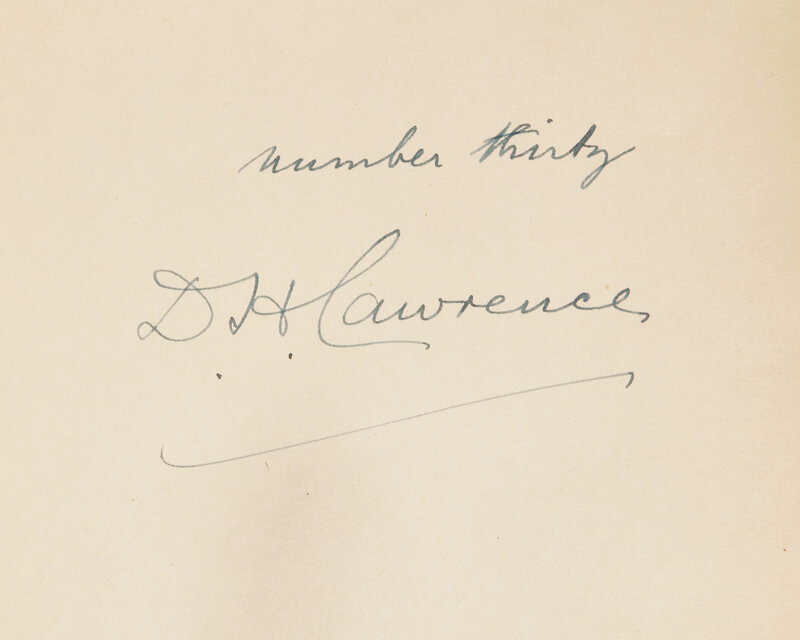 number thirty
D. H. Lawrence